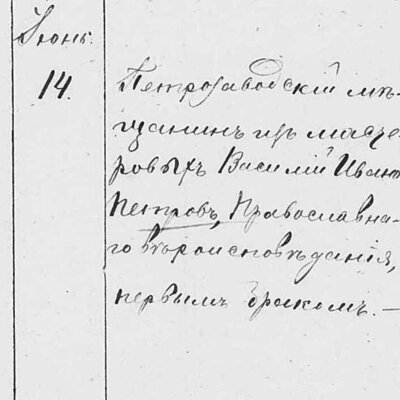 Іюнь.
14.
Петрозаводскій мѣ-
щанинъ изъ масте
ровыхъ Василій Иван
Петровъ, Православна-
го вѣроисповѣданія,
первымъ бракомъ. —